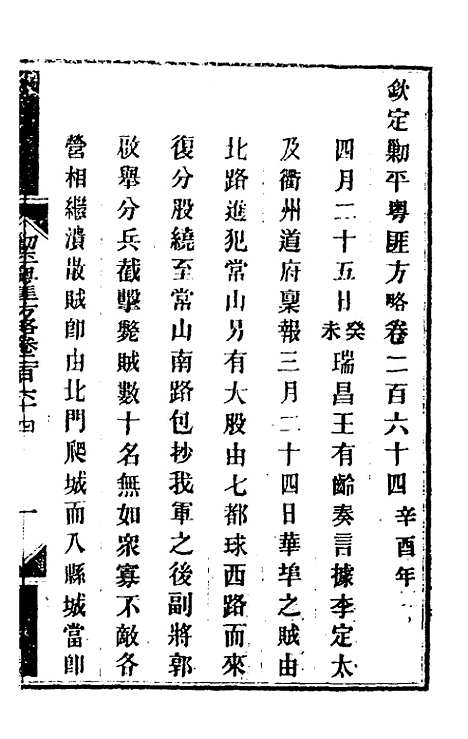 欽定勦平粵匪方略卷二百六十四 辛酉年
四月二十五日癸未瑞昌王有齡奏言據李定太
及衢州道府稟報三月二十四日華埠之賊由
北路進犯常山另有大股由七都球西路而來
復分股繞至常山南路包抄我軍之後副將郭
啟舉分兵截擊斃賊數十名無如衆寡不敵各
營相繼潰散賊卽由北門爬城而入縣城當卽
勦平粵匪方略卷二百六十四 一